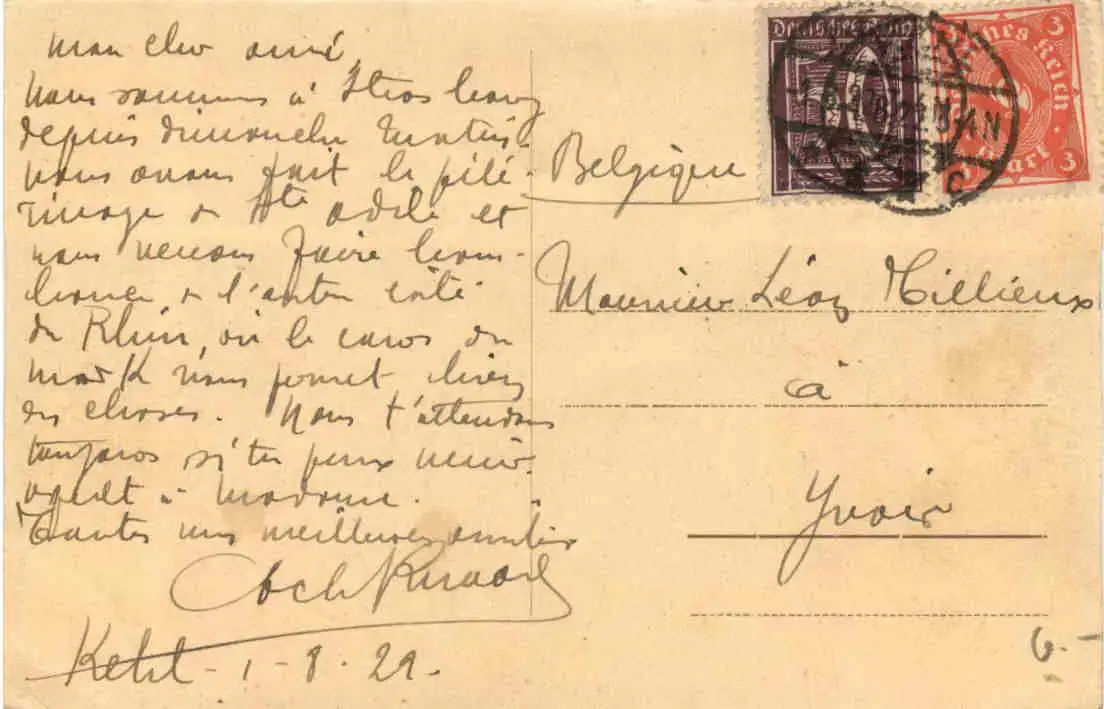 Mon cher ami
Nous sommes à Strasbourg
depuis dimanche matin
nous avons fait le pélé-
rinage à Ste Odile et
nous venons faire bom-
bance à l'autre côté
du Rhin, où le cours du
mark nous permet bien
des choses. Nous t'attendons
toujours si tu peux venir
à Madame.
Toutes nos meilleures amitiés
Kehl - 1-8-22.
Deutsches Reich
Deutsches Reich
3
3
Mark
C
Belgique
Monsieur Léon Tillieux
à
Yvoir
6.-